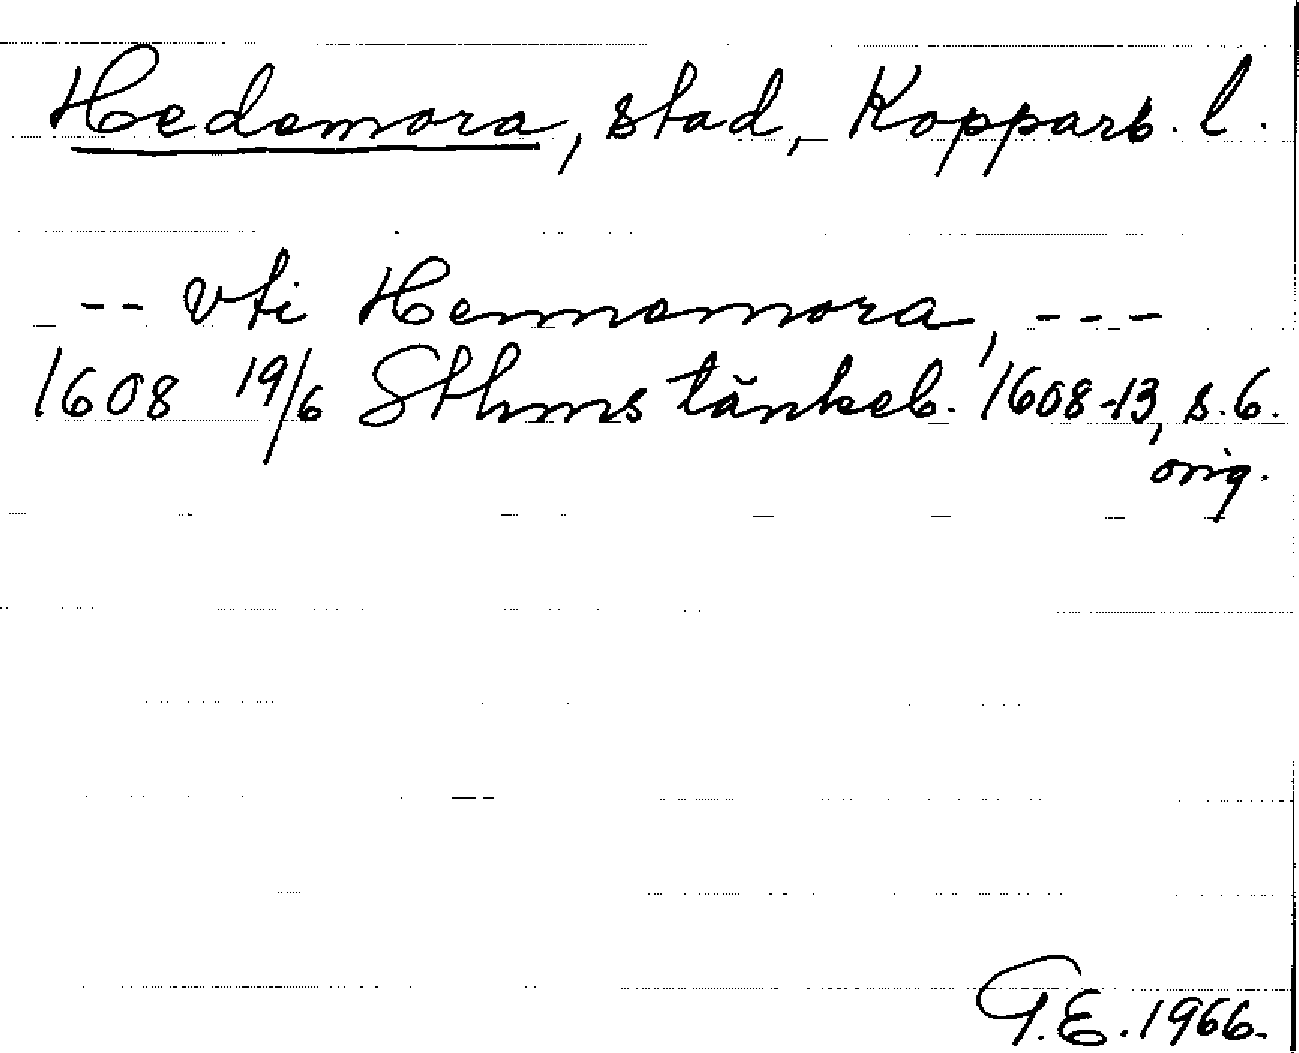 Hedemora, stad, Kopparb. l.
-- vti Hennomora, ---
1608 19/6 Sthms tänkeb. 1608-13, s. 6.
orig.
G.E. 1966.